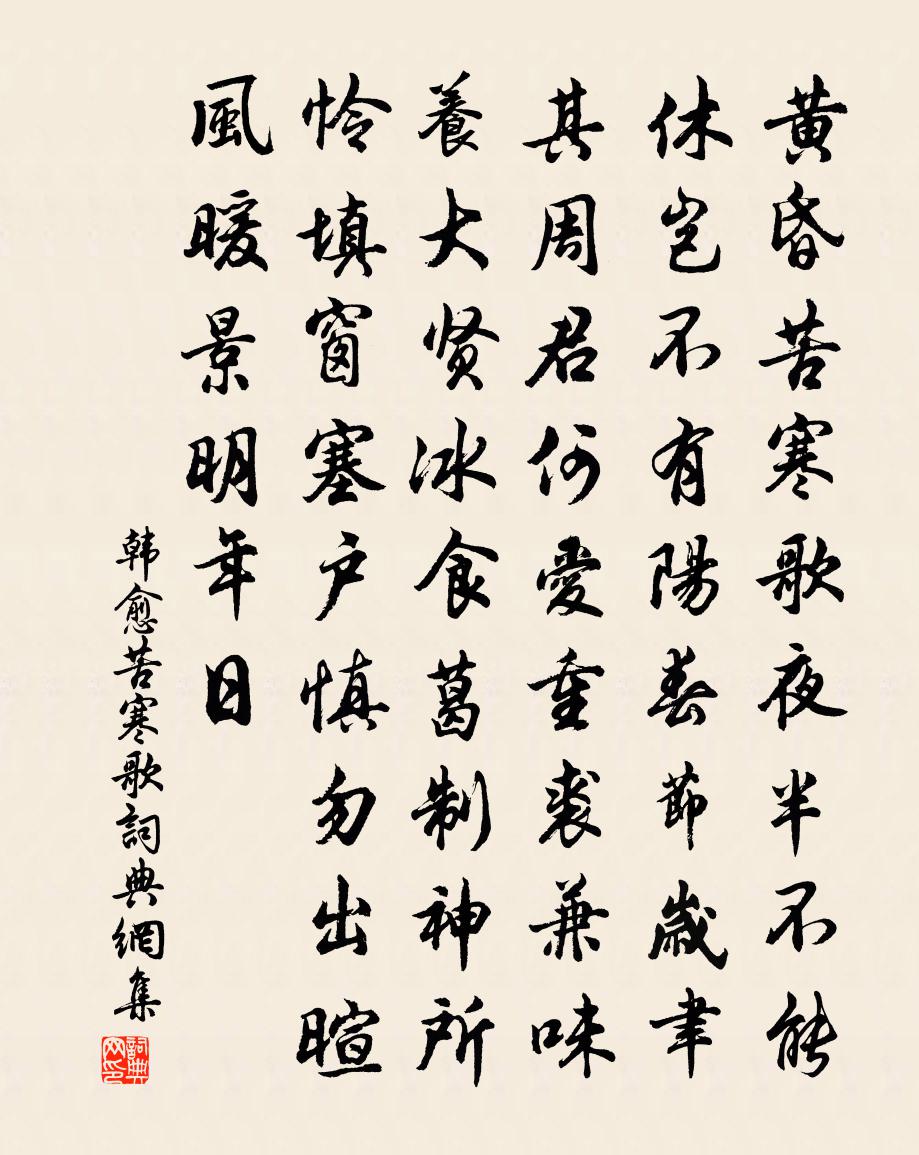 黄昏苦寒歌夜半不能
休岂不有陽春節歲聿
其周君何愛重裘兼味
養大贤冰食葛制神所
怜填窗塞户慎勿出暄
風暖景明年日
韩愈苦寒歌詞典網集
詞典网印